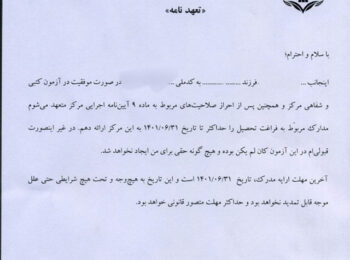 «تعهد نامه»
با سلام و احترام؛
اینجانب ... فرزند ........ ........ به کدملی ... در صورت موفقیت در آزمون کتبی
و شفاهی مرکز و همچنین پس از احراز صلاحیت‌های مربوط به ماده ۹ آیین‌نامه اجرایی مرکز متعهد می‌شوم
مدارک مربوط به فراغت تحصیل را حداکثر تا تاریخ ۱۴۰۱/۰۶/۳۱ به این مرکز ارائه دهم. در غیر اینصورت
قبولی‌ام در این آزمون کان لم یکن بوده و هیچ گونه حقی برای من ایجاد نخواهد شد.
آخرین مهلت ارایه مدرک، تاریخ ۱۴۰۱/۰۶/۳۱ است و این تاریخ به هیچ‌وجه و تحت هیچ شرایطی حتی عقل
موجه قابل تمدید نخواهد بود و حداکثر مهلت متصور قانونی خواهد بود.